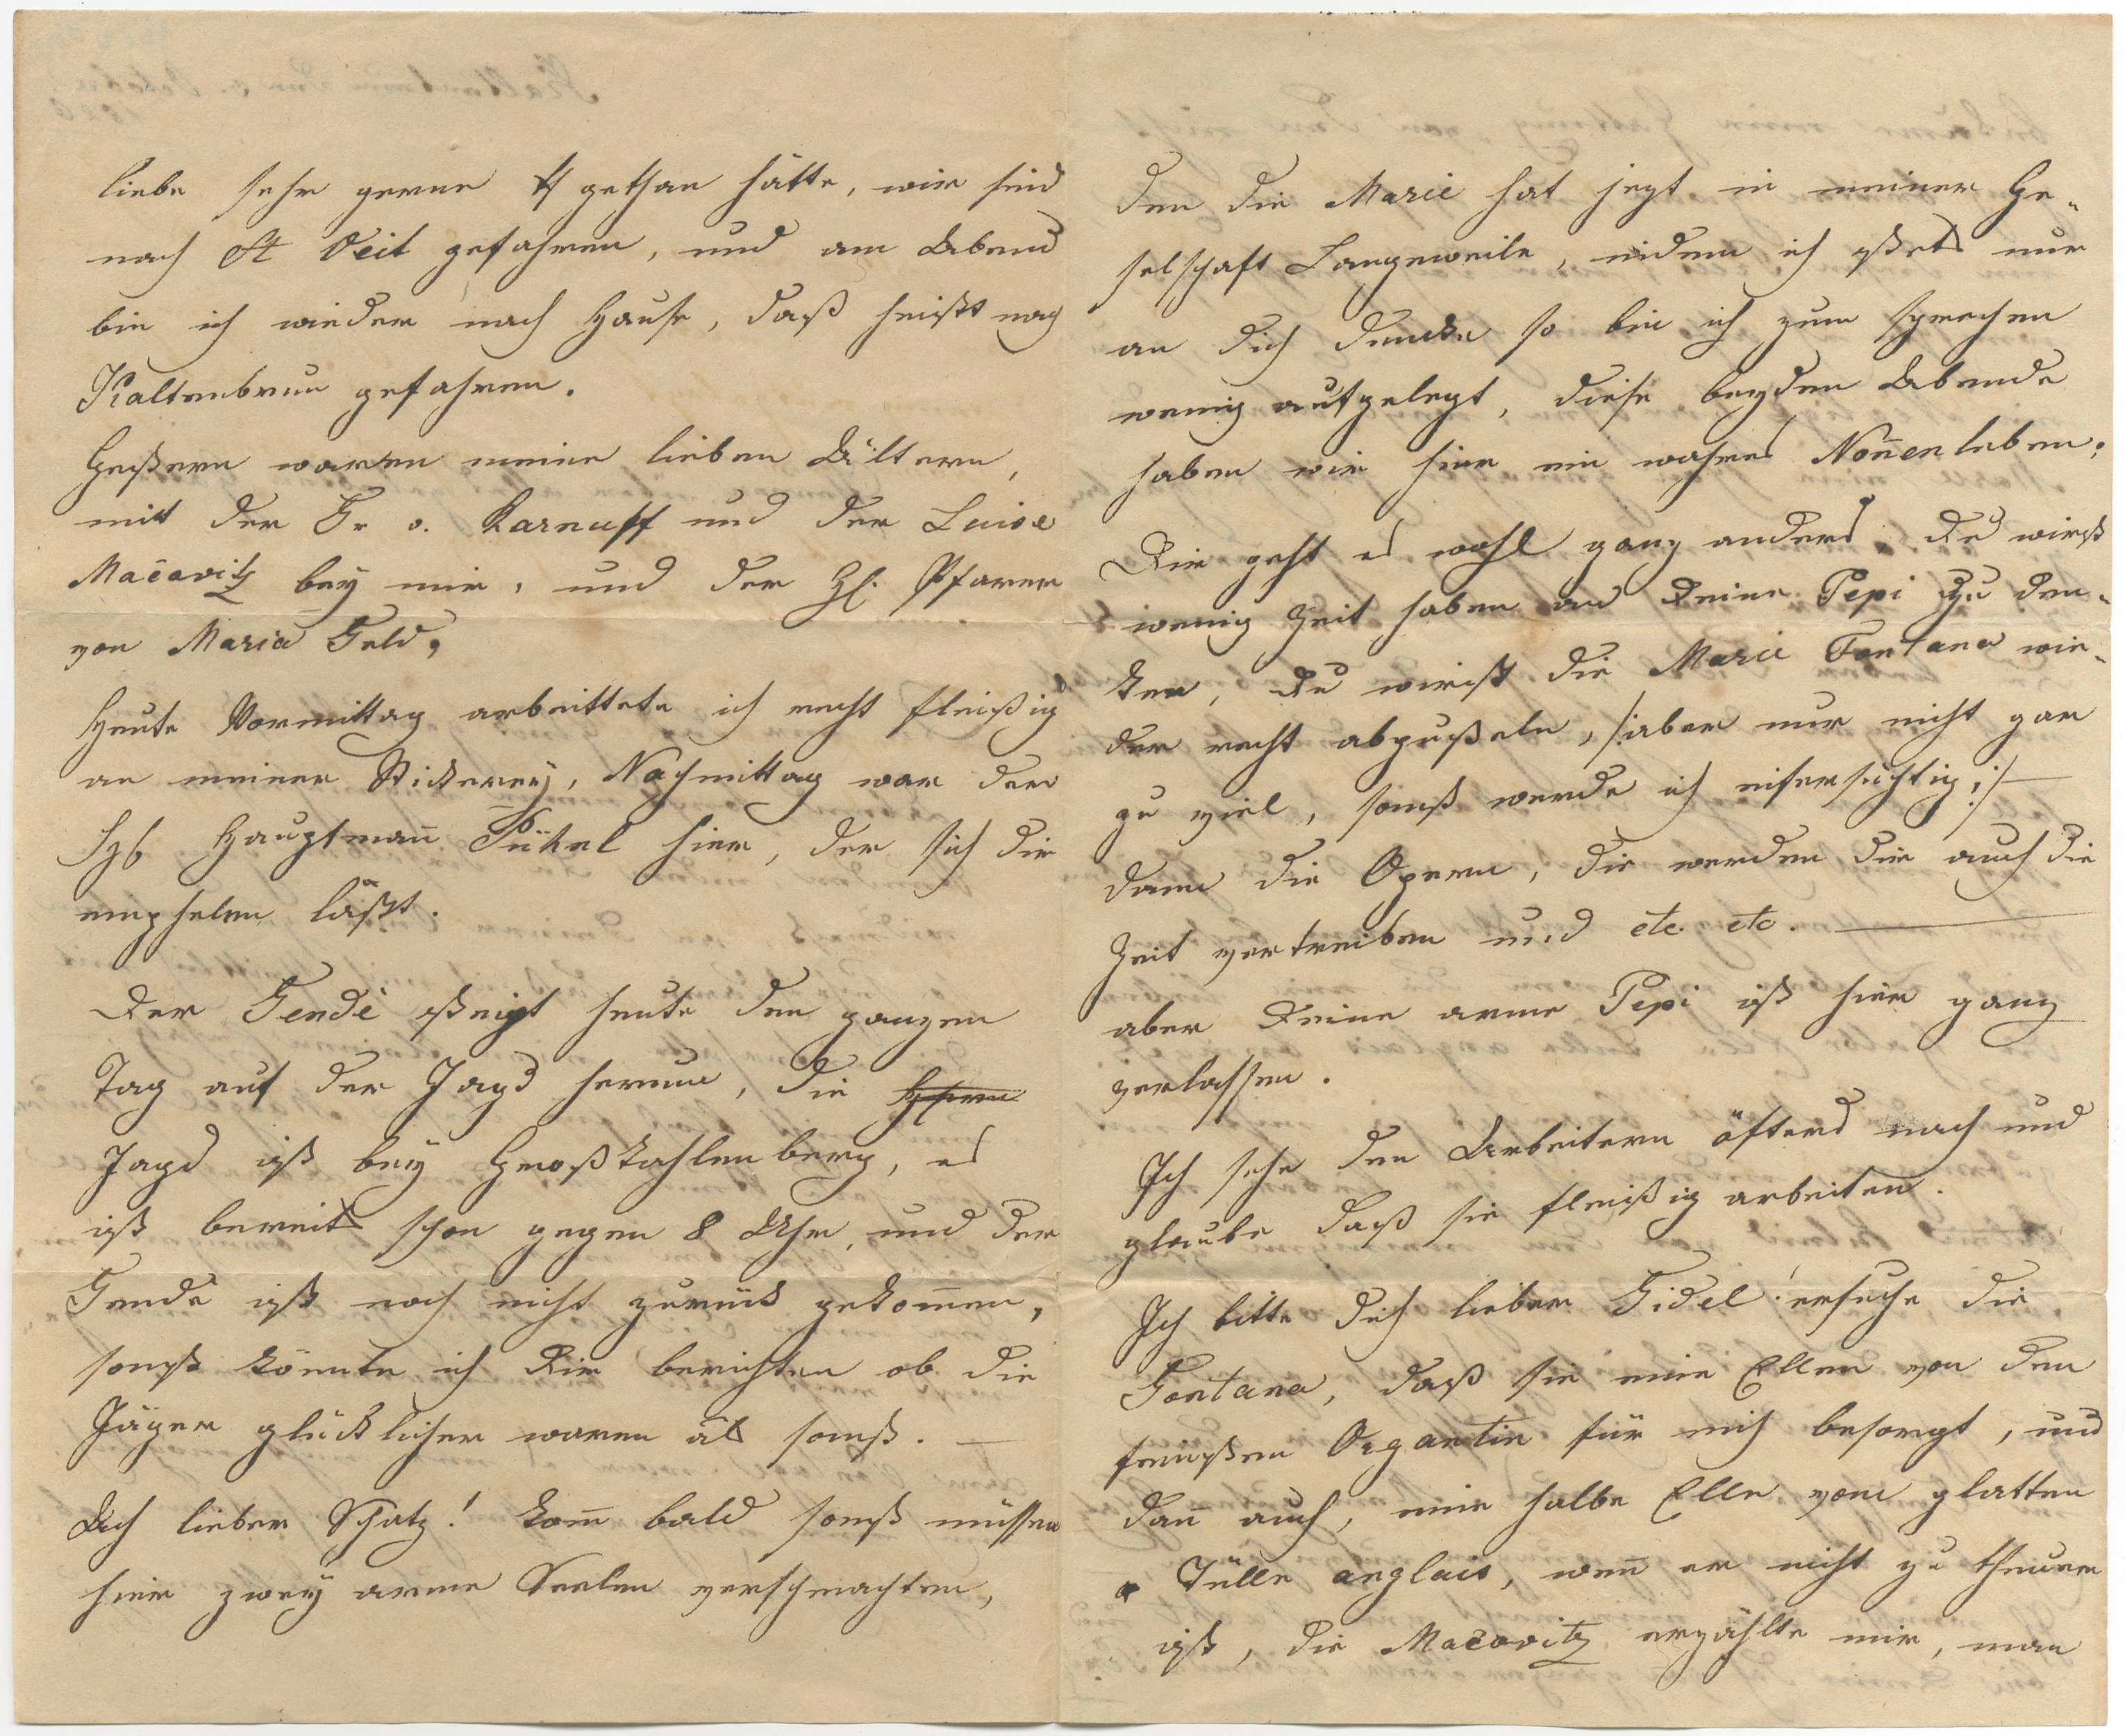 liebe sehr gerne gethan hätte, wir sind
nach St Veit gefahren, und am Abend
bin ich wieder nach Hause, daß heißt nach
Kaltenbrun gefahren.
Gestern waren meine lieben Ältern,
mit der Fr v. Karnuff und der Luise
Mačovitz bey mir, und der H. Pfarer
von Maria Feld,
Heute Vormittag arbeittete ich recht fleißig
an meiner Stickerey, Nachmittag war der
Hauptmañ Pükel hier, der sich dir
empfehlen läßt.
Der Fendé steigt heute den ganzen
Tag auf der Jagd herum, die
Jagd ist bey Großkahlenberg, es
ist bereits schon gegen 8 Uhr, und der
Fendé ist noch nicht zurück gekom̄en,
sonst könnte ich Dir berichten ob die
Jäger glücklicher waren als sonst. —
Ach lieber Schatz! kom̄ bald sonst müssen
hier zwey arme Seelen verschmachten,
den die Marie hat jezt in meiner Ge-
selschaft Langeweile, indem ich stets nur
an dich dencke so bin ich zum sprechen
wenig aufgelegt, diese beyden Abende
haben wir hier ein wahres Noñenleben;
Dir geht es wohl ganz anders, Du wirst
wenig Zeit haben an Deine Pepi zu den-
ken, Du wirst die Marie Fontana wie-
der recht abpusseln, /:aber nur nicht gar
zu viel, sonst werde ich eifersüchtig:/ —
dann die Opern, die werden dir auch die
Zeit vertreiben und etc etc. —
aber Deine arme Pepi ist hier ganz
verlassen.
Ich sehe den Arbeitern öfters nach und
glaube daß sie fleißig arbeiten.
Ich bitte dich lieber Fidel! ersuche die
Fontana, daß sie eine Ellen von dem
feinsten Organtin für mich besorgt, und
dañ auch, eine halbe Elle vom glatten
Tülle anglais, weñ er nicht zu theuer
ist, die Mačovitz erzählte mir, man